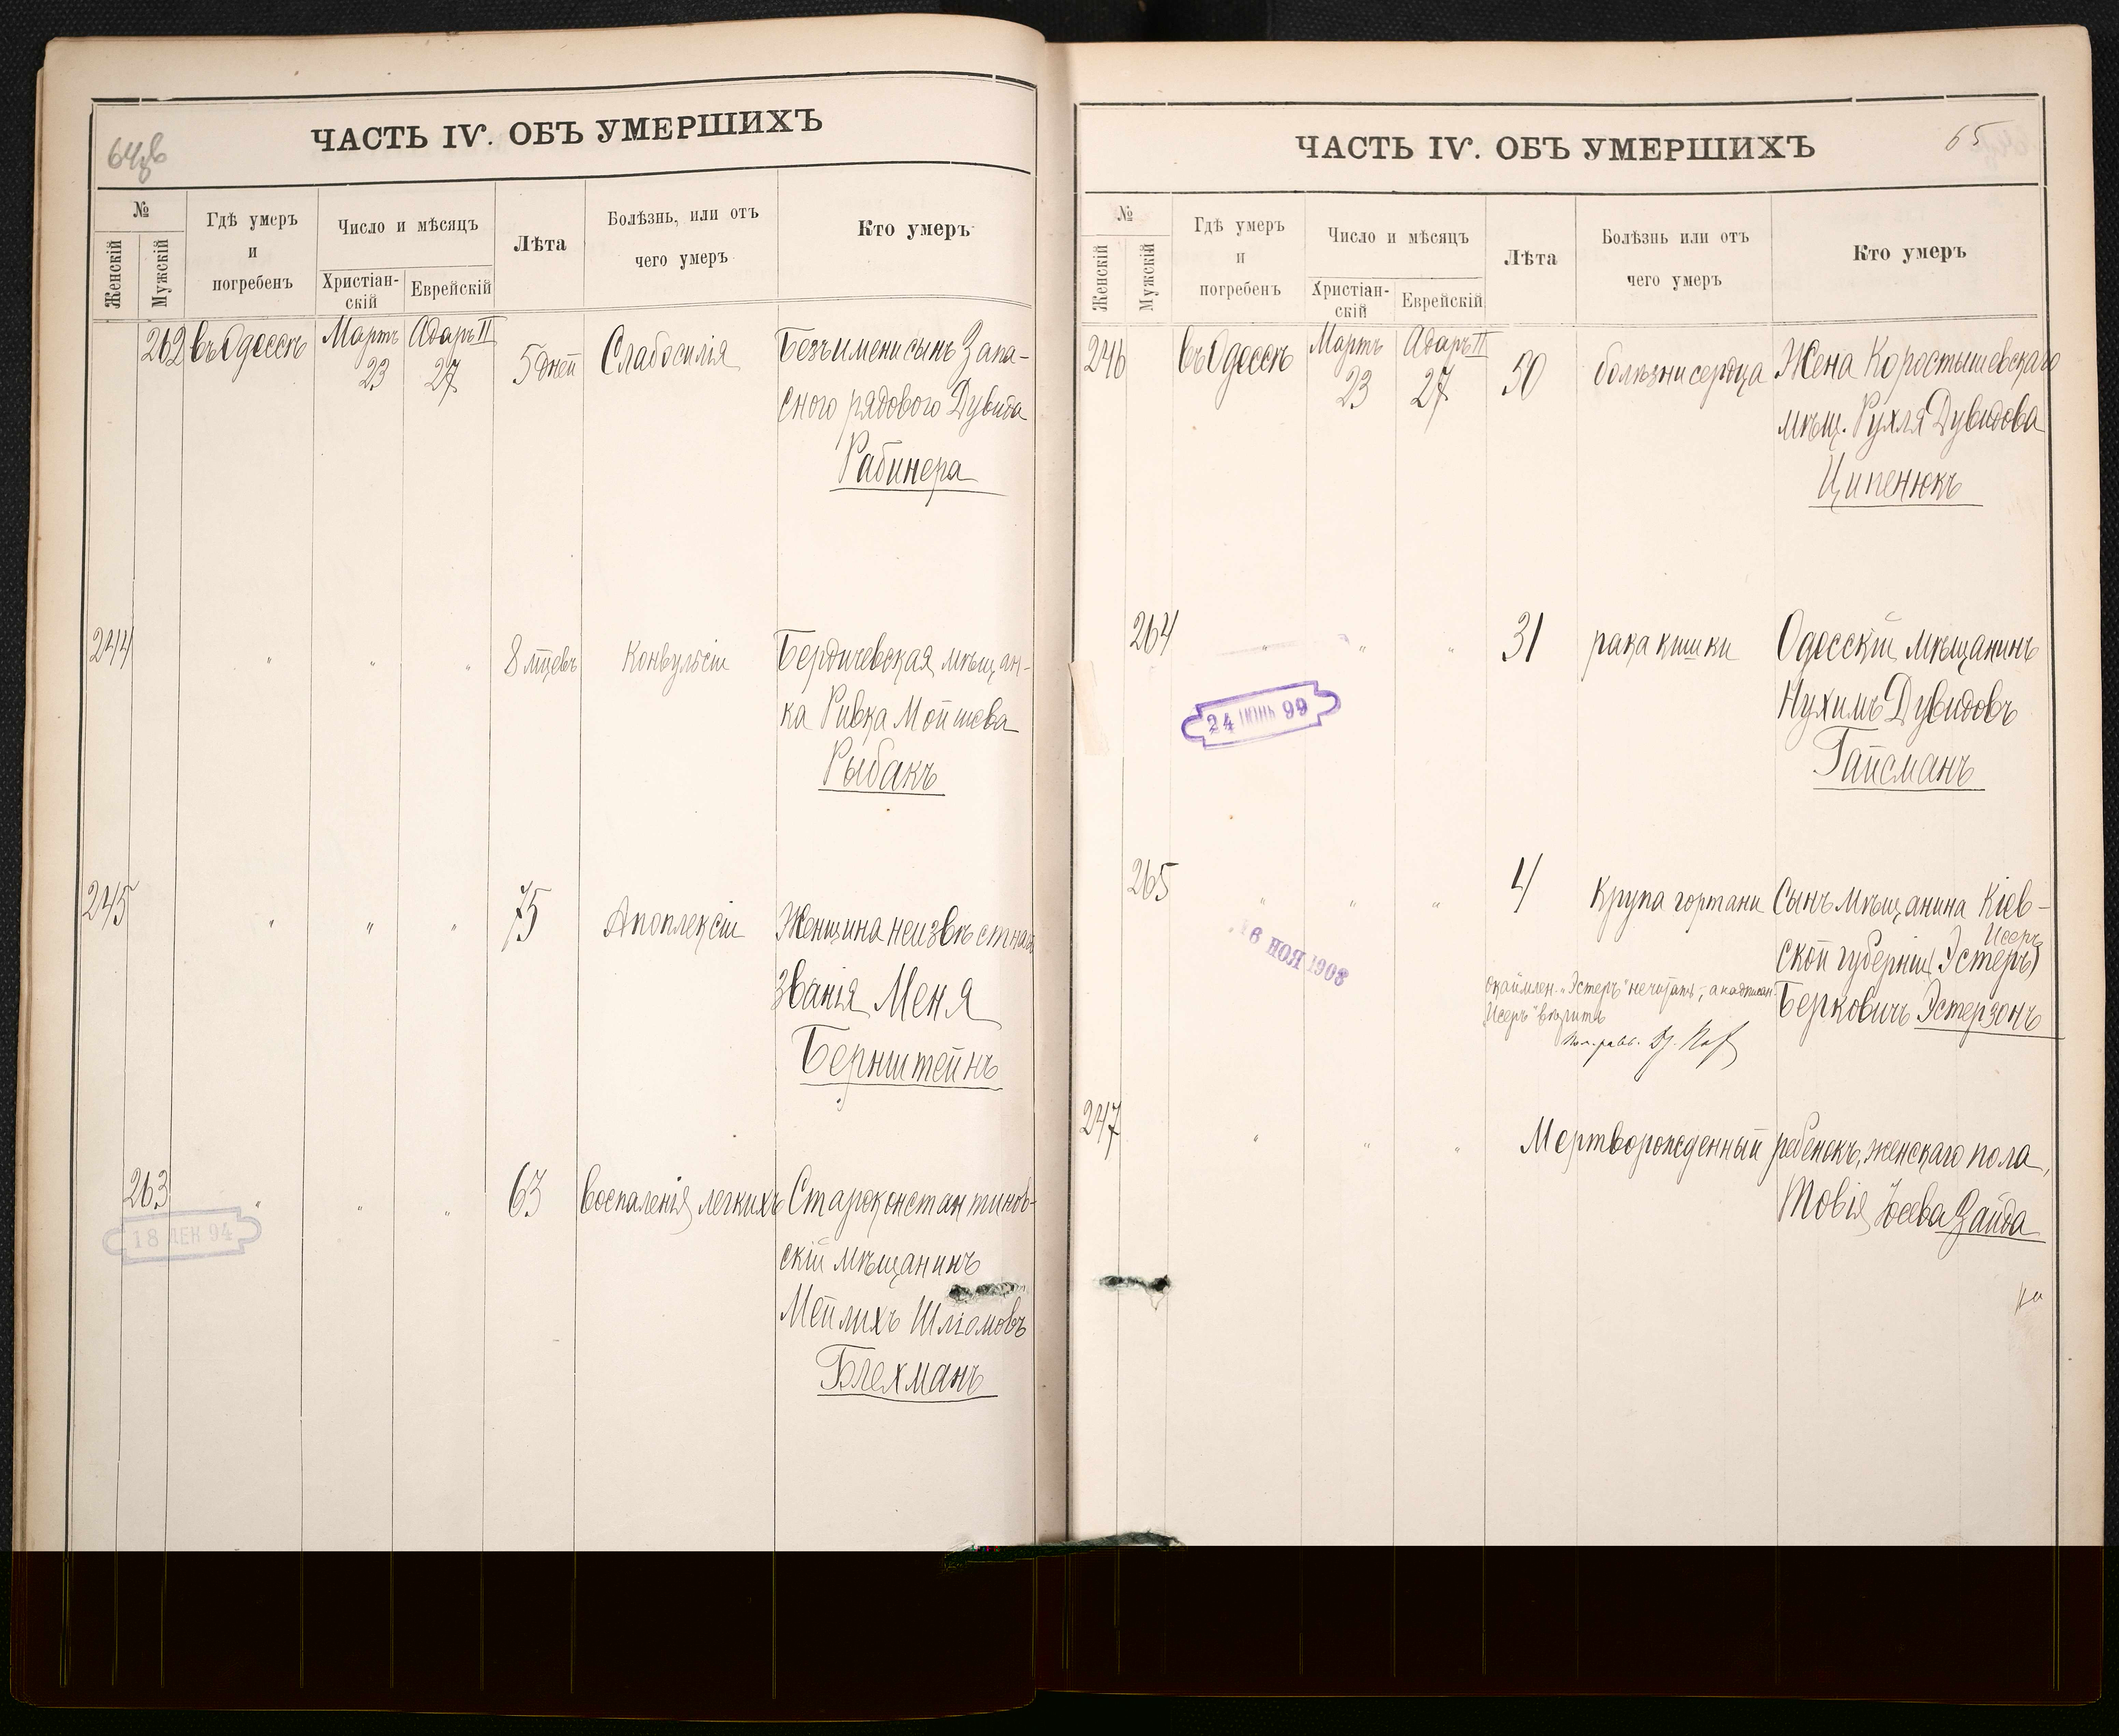 64об
ЧАСТЬ IV. ОБЪ УМЕРШИХЪ
№
Женскій
Мужскій
Гдѣ умеръ
и
погребенъ
Число и мѣсяцъ
Христіан-
скій
Еврейскій
Лѣта
Болѣзнь, или отъ
чего умеръ
Кто умеръ
262 въ Одессѣ Мартъ 23 Адаръ II 27 5 дней Слабосилія Безъ имени сынъ Запа-
сного рядового Дувида
Рабинера
244 " " " 8 мцевъ Конвульсіи Бердичевская мѣщан-
ка Ривка Мойшева
Рыбакъ
245 " " " 75 Апоплексіи Женщина неизвѣстнаго
званія Меня
Бернштейнъ
263 " " " 63 Воспаленія легкихъ Староконстантинов-
скій мѣщанинъ
Мейлихъ Шліомовъ
Блехманъ
18 ДЕК 94
65
ЧАСТЬ IV. ОБЪ УМЕРШИХЪ
№
Женскій
Мужскій
Гдѣ умеръ
и
погребенъ
Число и мѣсяцъ
Христіан-
скій
Еврейскій
Лѣта
Болѣзнь или отъ
чего умеръ
Кто умеръ
246 въ Одессѣ Мартъ 23 Адаръ II 27 50 болѣзни сердца Жена Коростышевскаго
мѣщ. Рухля Дувидова
Ципенюкъ
264 " " " 31 рака кишки Одесскій мѣщанинъ
Нухимъ Дувидовъ
Гайсманъ
24 ІЮНЬ 99
265 " " " 4 Крупа гортани Сынъ мѣщанина Кіев-
Исеръ
ской губерніи (Эстеръ)
Берковичъ Эстерзонъ
16 НОЯ 1908
окаймлен. "Эстеръ" не читать, а надписан.
"Исеръ" вѣрить
247 " " " Мертворожденный ребенокъ, женскаго пола,
Товія Іосева Зайда